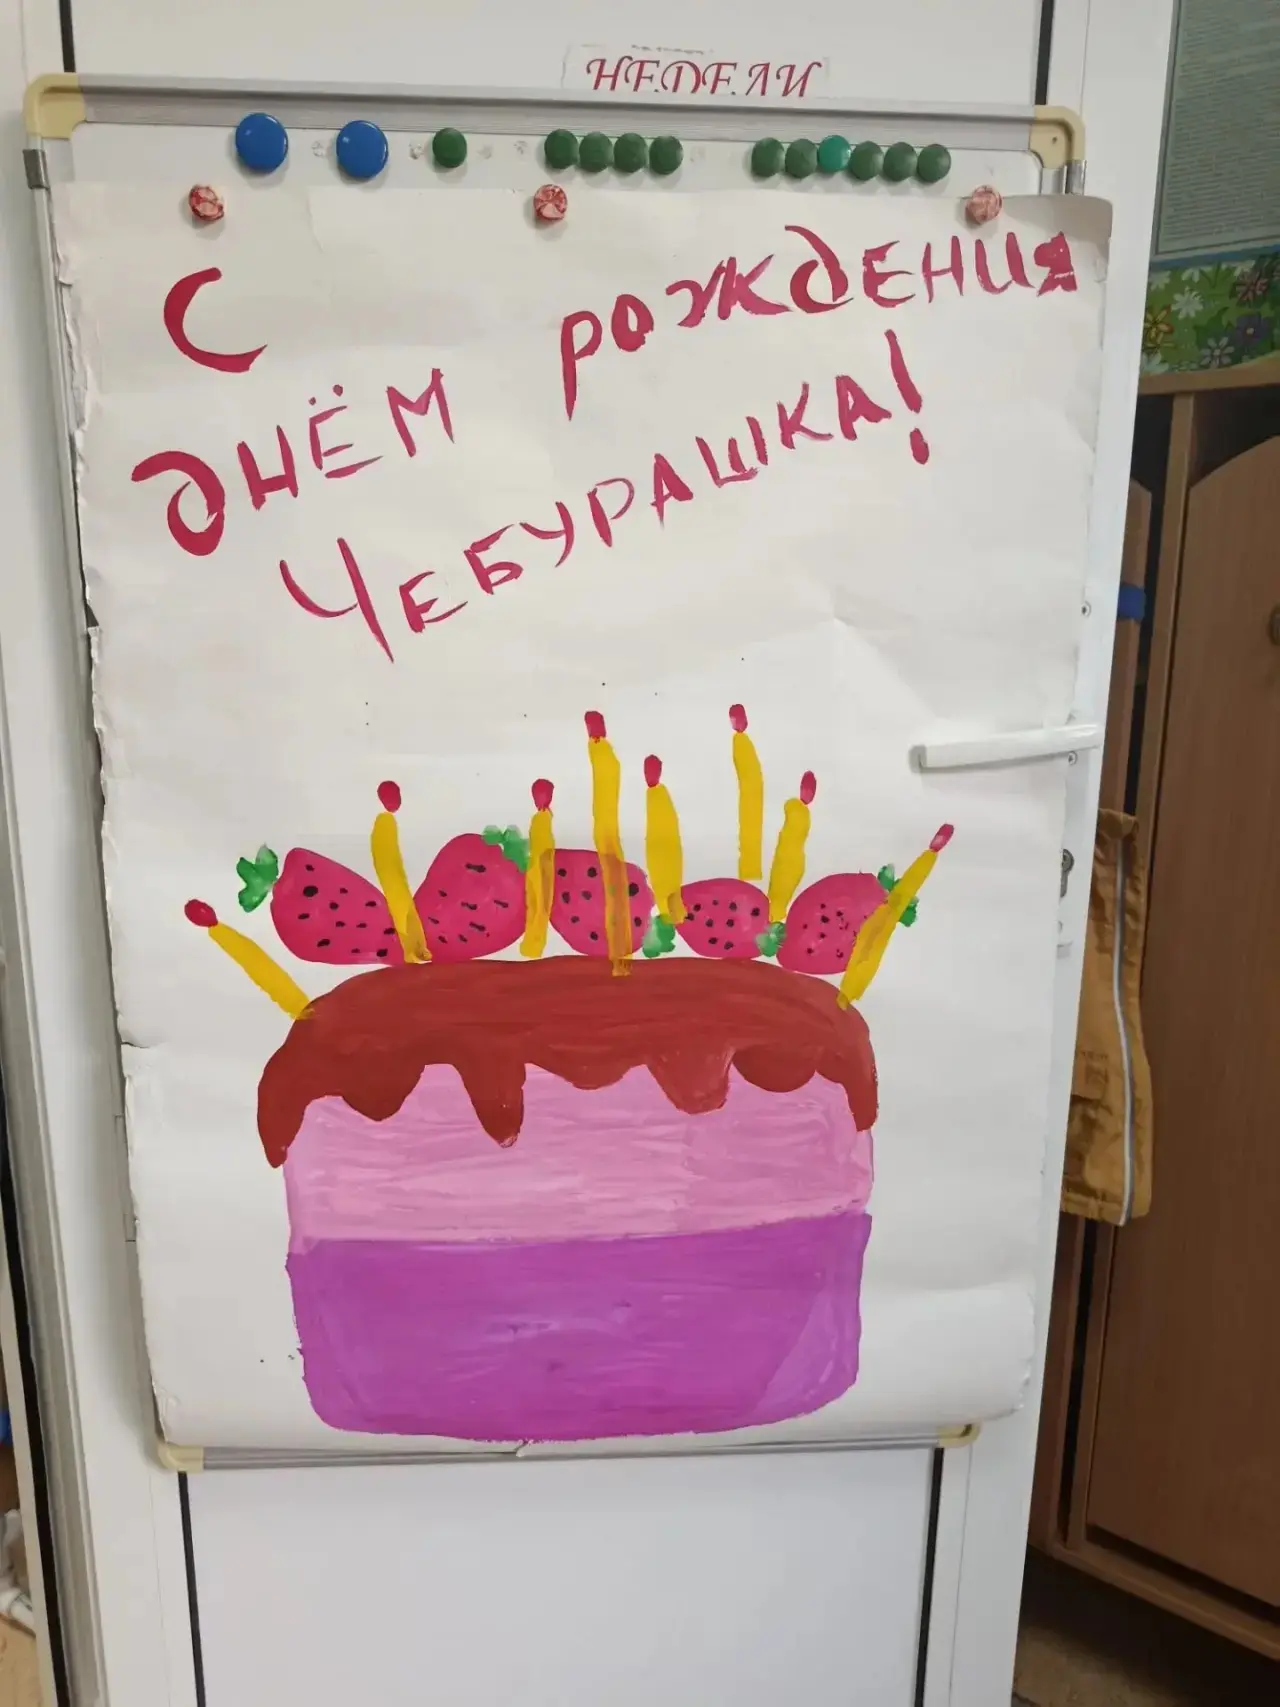 НЕДЕЛИ
С
ДНЁМ РОЖДЕНИЯ
ЧЕБУРАШКА!